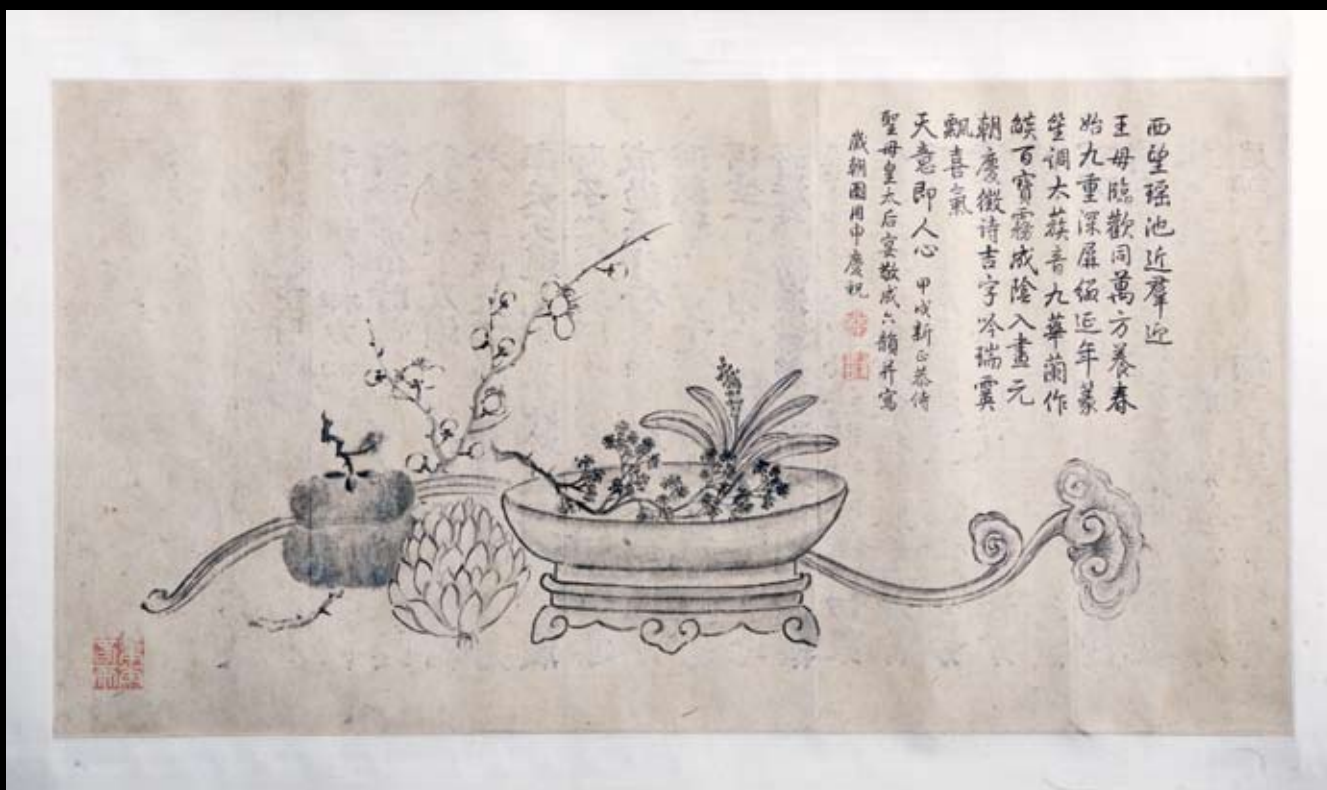 西望瑶池近羣迎
王母臨歡同萬方養春
始九重深屏綴延年篆
笙調大蔟音九華蘭作
燄百寶霧成陰入畫元
朝慶徵詩吉字吟瑞霙
飄喜氣
天意即人心 甲戌新正恭侍
聖母皇太后宴敬成六韻并寫
歲朝圖用申慶祝